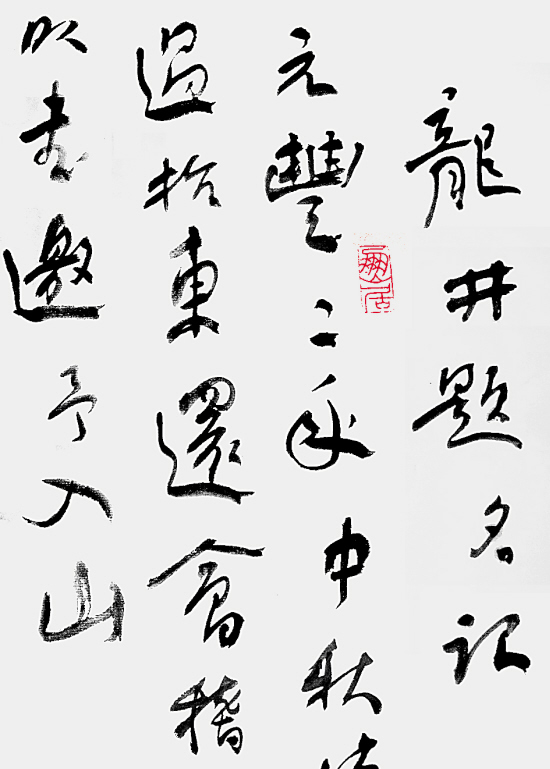 龍井題名記
元豐二年中秋
過杭東還會稽
以書邀予入山